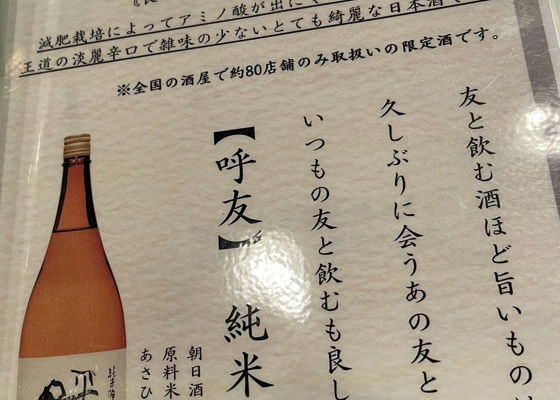 減肥栽培によってアミノ酸が出に
王道の淡麗辛口で雑味の少ないとても綺麗な日本酒で
※全国の酒屋で約80店舗のみ取扱いの限定酒です。
友と飲む酒ほど旨いもの
久しぶりに会うあの友と
いつもの友と飲むも良し
【呼友】純米
朝日酒
原料米
あさひ
純米